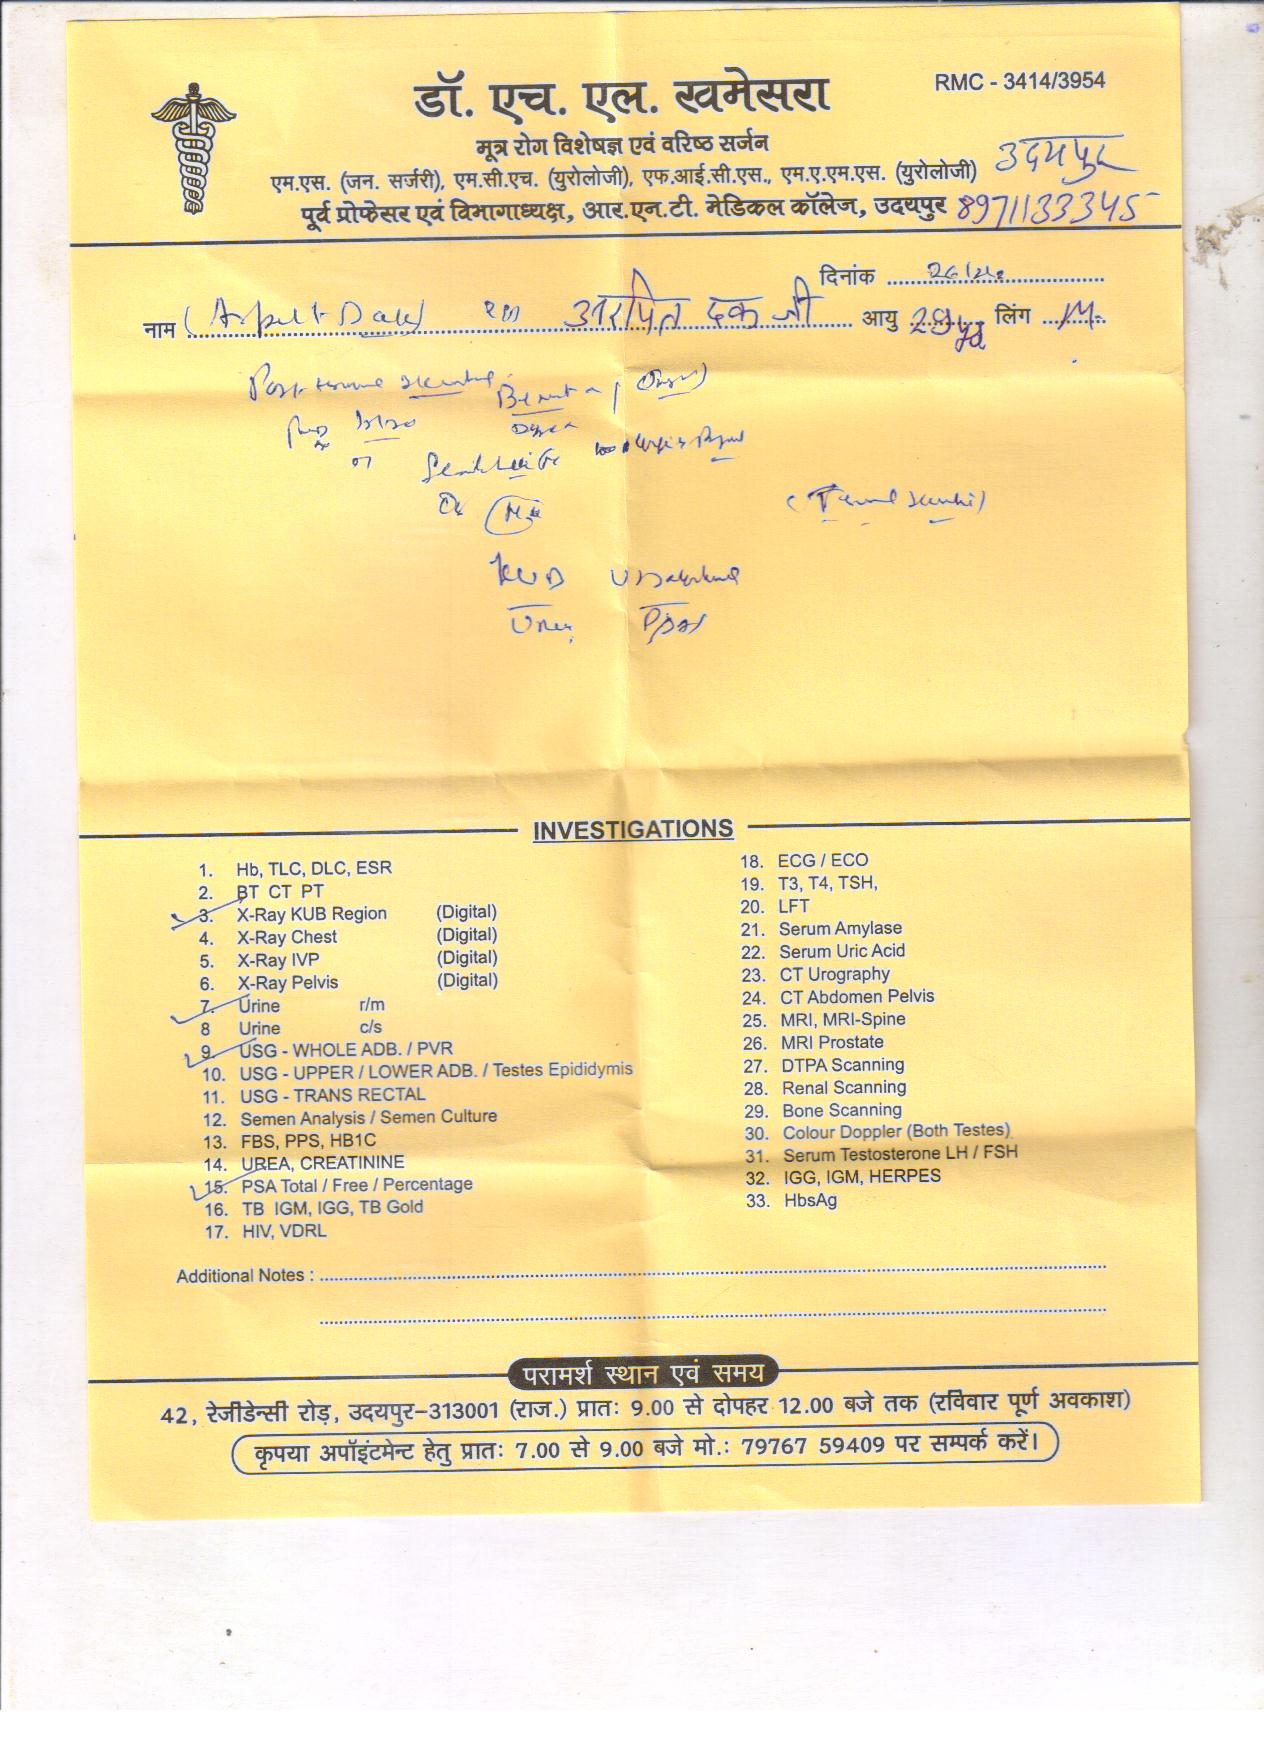 डॉ. एच. एल. खमेसरा
RMC - 3414/3954
मूत्र रोग विशेषज्ञ एवं वरिष्ठ सर्जन
एम.एस. (जन. सर्जरी), एम.सी.एच. (युरोलोजी), एफ.आई.सी.एस., एम.ए.एम.एस. (युरोलोजी)
उदयपुर
पूर्व प्रोफेसर एवं विभागाध्यक्ष, आर.एन.टी. मेडिकल कॉलेज, उदयपुर 8971133345
दिनांक
नाम (Arpit Dak) आरपित दक जी आयु 29 yr लिंग M.
KUB
Urine
INVESTIGATIONS
1. Hb, TLC, DLC, ESR
2. BT CT PT
3. X-Ray KUB Region (Digital)
4. X-Ray Chest (Digital)
5. X-Ray IVP (Digital)
6. X-Ray Pelvis (Digital)
7. Urine r/m
8 Urine c/s
9. USG - WHOLE ADB. / PVR
10. USG - UPPER / LOWER ADB. / Testes Epididymis
11. USG - TRANS RECTAL
12. Semen Analysis / Semen Culture
13. FBS, PPS, HB1C
14. UREA, CREATININE
15. PSA Total / Free / Percentage
16. TB IGM, IGG, TB Gold
17. HIV, VDRL
18. ECG / ECO
19. T3, T4, TSH,
20. LFT
21. Serum Amylase
22. Serum Uric Acid
23. CT Urography
24. CT Abdomen Pelvis
25. MRI, MRI-Spine
26. MRI Prostate
27. DTPA Scanning
28. Renal Scanning
29. Bone Scanning
30. Colour Doppler (Both Testes)
31. Serum Testosterone LH / FSH
32. IGG, IGM, HERPES
33. HbsAg
Additional Notes :
परामर्श स्थान एवं समय
42, रेजीडेन्सी रोड़, उदयपुर-313001 (राज.) प्रातः 9.00 से दोपहर 12.00 बजे तक (रविवार पूर्ण अवकाश)
कृपया अपॉइंटमेन्ट हेतु प्रातः 7.00 से 9.00 बजे मो.: 79767 59409 पर सम्पर्क करें।